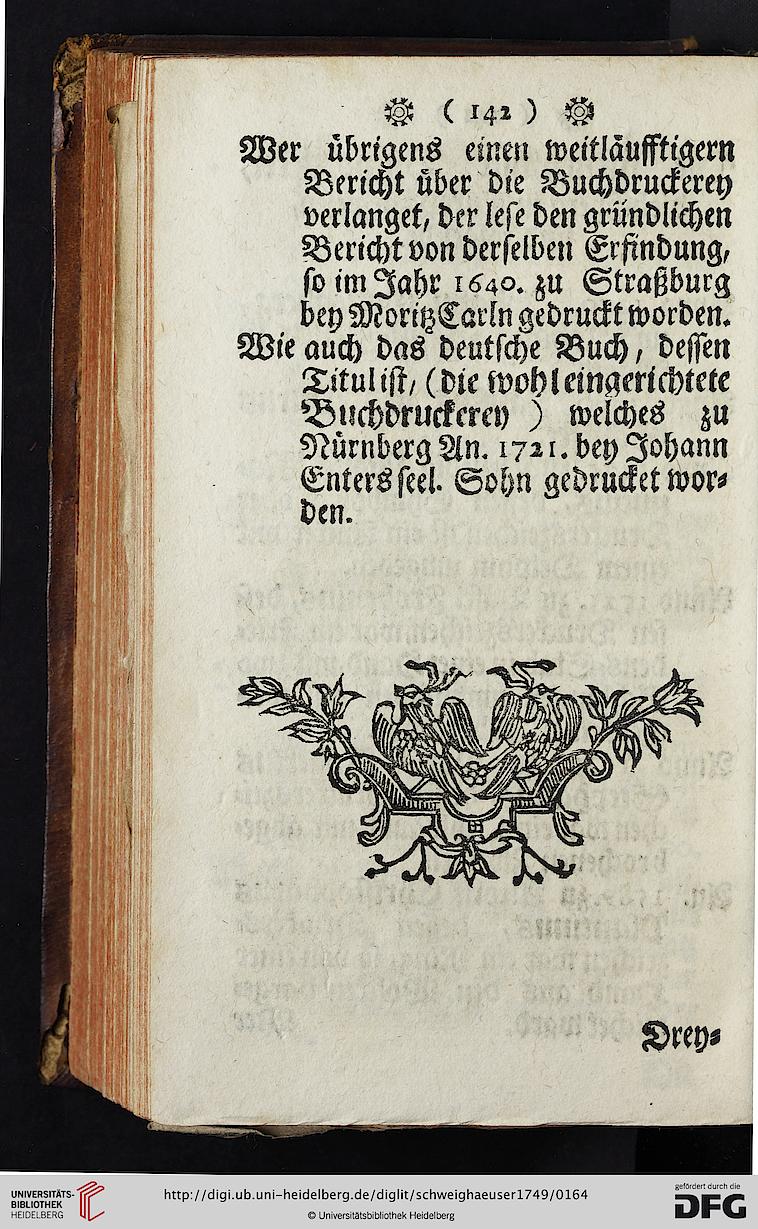 ( 142 )
Wer übrigens einen weitläufftigern
Bericht über die Buchdruckerey
verlanget, der lese den gründlichen
Bericht von derselben Erfindung,
so im Jahr 1640. zu Straßburg
bey Moritz Carln gedruckt worden.
Wie auch das deutsche Buch, dessen
Titul ist, (die wohl eingerichtete
Buchdruckerey ) welches zu
Nürnberg An. 1721. bey Johann
Enters seel. Sohn gedrucket wor-
den.
Drey-
UNIVERSITÄTS-
BIBLIOTHEK
HEIDELBERG
http://digi.ub.uni-heidelberg.de/diglit/schweighaeuser1749/0164
© Universitätsbibliothek Heidelberg
gefördert durch die
DFG